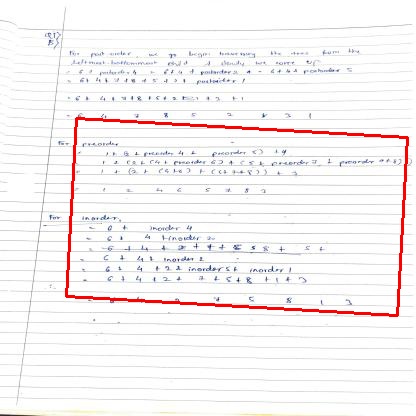 Q1)
B)
For post-order, we go begin traversing the tree from the
leftmost-bottommost child & slowly we come up
= 6 + postorder 4 = 6 + 4 + postorder 2 + = 6 + 4 + postorder 5
= 6 + 4 + 7 + 8 + 5 + 2 + postorder 1
= 6 + 4 + 7 + 8 + 5 + 2 + 3 + 1
= 6 4 7 8 5 2 3 1
For preorder
= 1 + (2 + preorder 4 + preorder 5) +
= 1 + (2 + (4 + preorder 6) + (5 + preorder 7 + preorder 8))
= 1 + (2 + (4+6) + (5+7+8)) + 3
= 1 2 4 6 5 7 8 3
For inorder,
= 6 + inorder 4
= 6 + 4 + inorder 2
= 6 + 4 + 2 + 7 + 5 8 + 5 +
= 6 + 4 + inorder 2
= 6 + 4 + 2 + inorder 5 + inorder 1
= 6 + 4 + 2 + 7 + 5 + 8 + 1 + 3
= 6 4 2 7 5 8 1 3